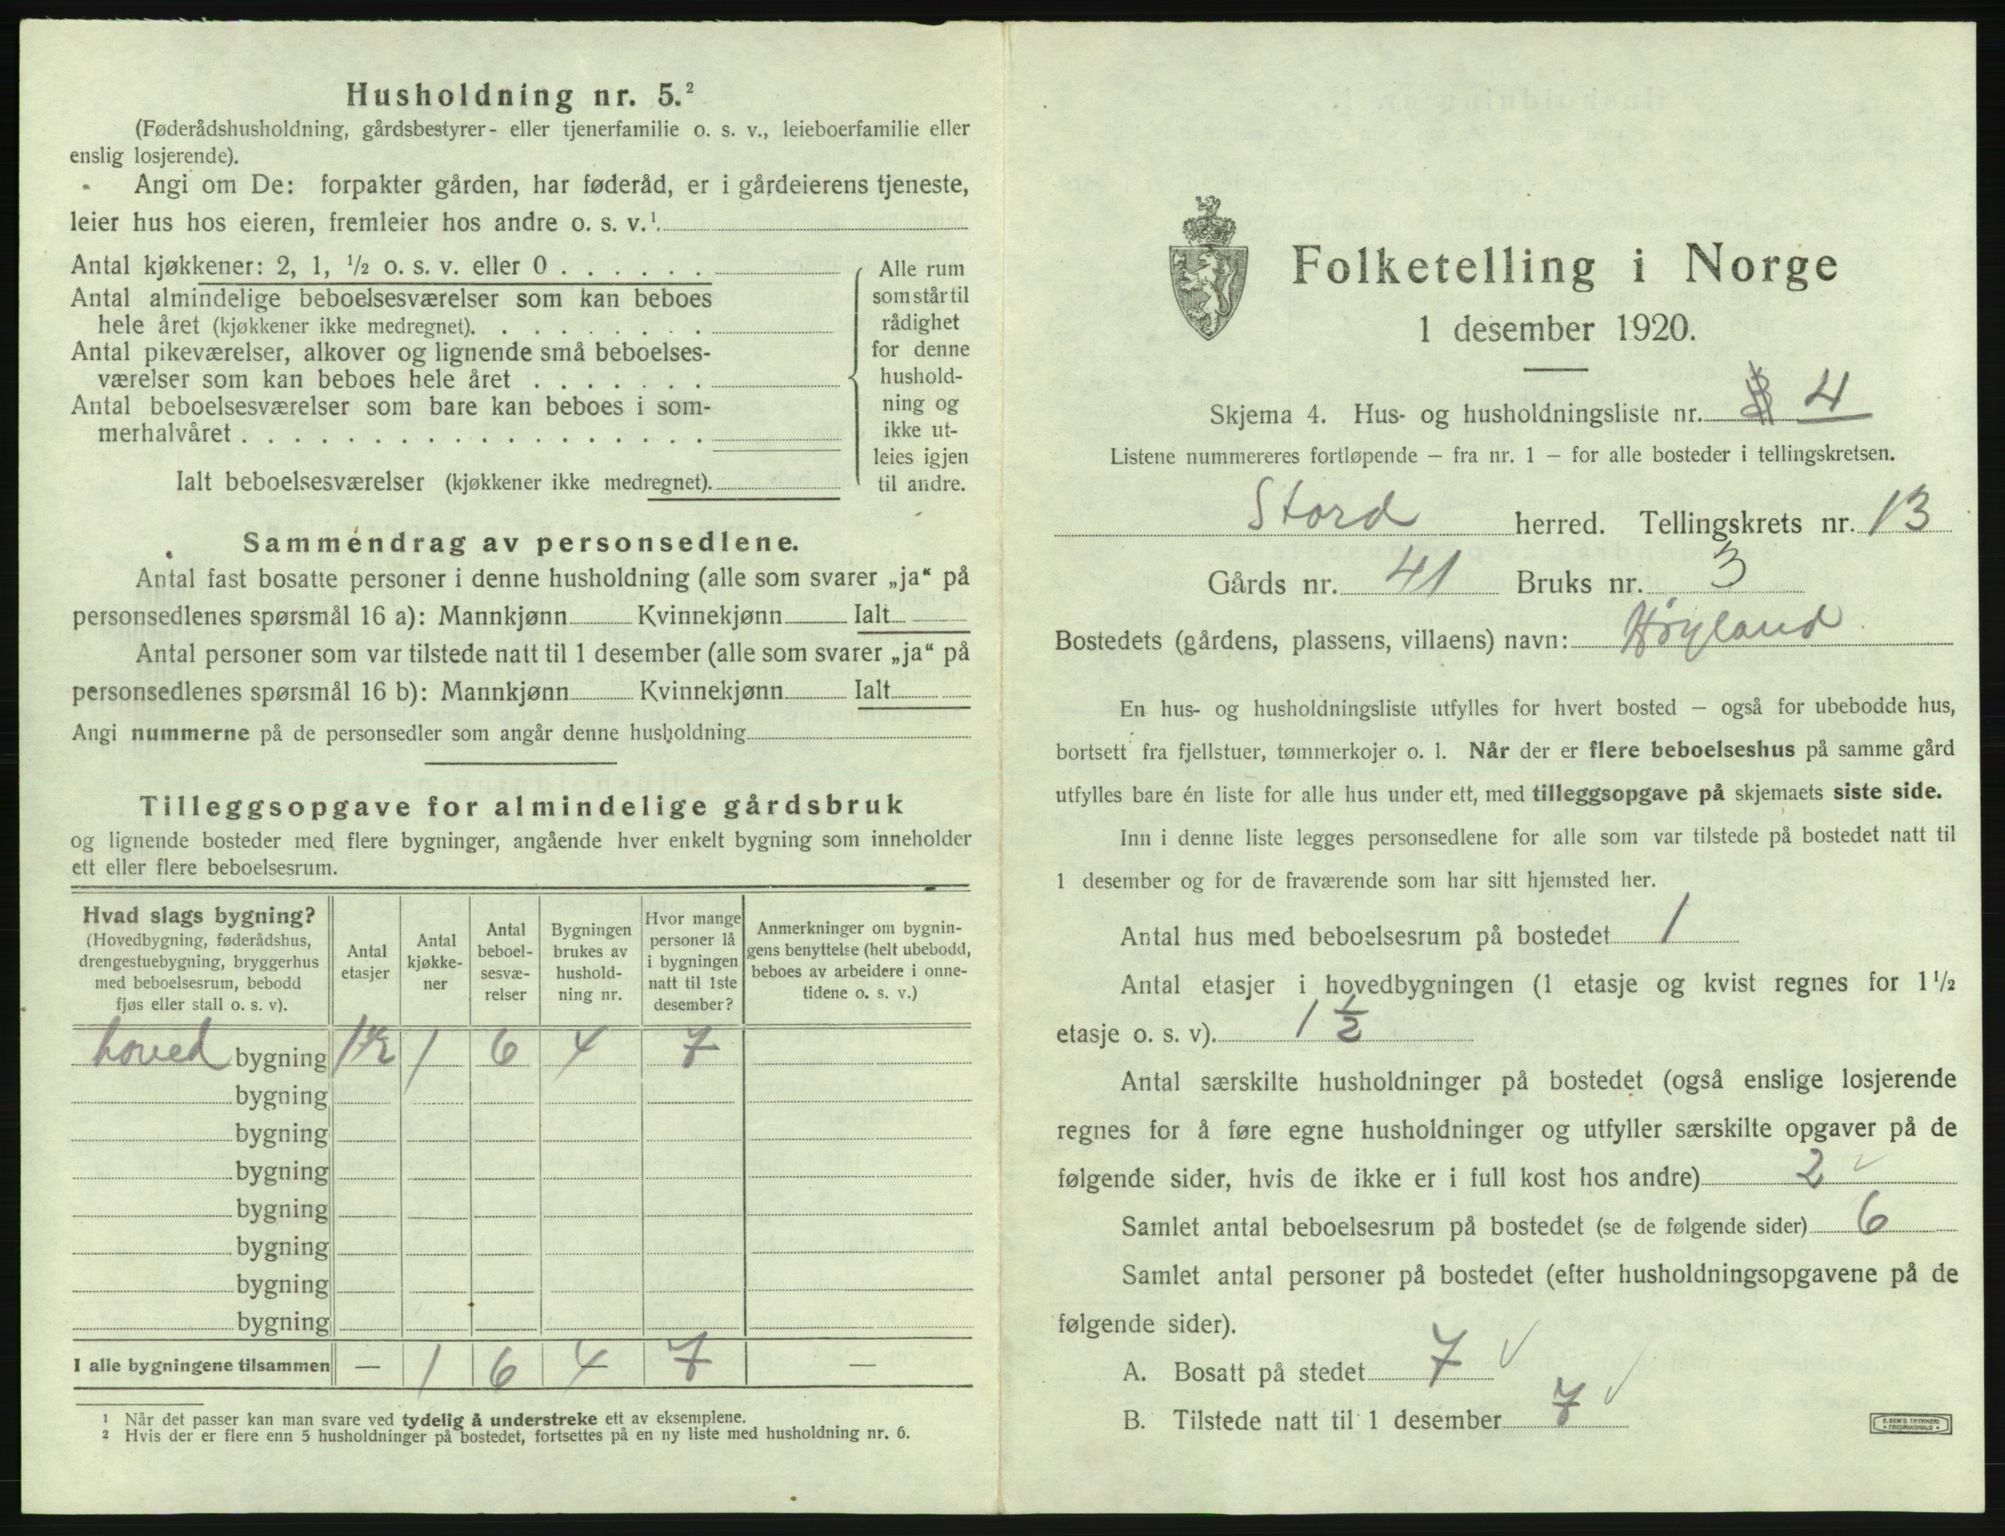 Husholdning nr. 5.²
(Føderådshusholdning, gårdsbestyrer- eller tjenerfamilie o. s. v., leieboerfamilie eller
enslig losjerende).
Angi om De: forpakter gården, har føderåd, er i gårdeierens tjeneste,
leier hus hos eieren, fremleier hos andre o. s. v.¹
Antal kjøkkener: 2, 1, ½ o. s. v. eller 0 . . . . . .
Antal almindelige beboelsesværelser som kan beboes
hele året (kjøkkener ikke medregnet). . . . . . . . .
Antal pikeværelser, alkover og lignende små beboelses-
værelser som kan beboes hele året . . . . . . .
Antal beboelsesværelser som bare kan beboes i som-
merhalvåret . . . . . . . . . . . . . . . . . .
Ialt beboelsesværelser (kjøkkener ikke medregnet).
Alle rum
som står til
rådighet
for denne
hushold-
ning og
ikke ut-
leies igjen
til andre.
Sammendrag av personsedlene.
Antal fast bosatte personer i denne husholdning (alle som svarer „ja“ på
personsedlenes spørsmål 16 a): Mannkjønn Kvinnekjønn Ialt
Antal personer som var tilstede natt til 1 desember (alle som svarer „ja“ på
personsedlenes spørsmål 16 b): Mannkjønn Kvinnekjønn Ialt
Angi nummerne på de personsedler som angår denne husholdning
Tilleggsopgave for almindelige gårdsbruk
og lignende bosteder med flere bygninger, angående hver enkelt bygning som inneholder
ett eller flere beboelsesrum.
Hvad slags bygning?
(Hovedbygning, føderådshus,
drengestuebygning, bryggerhus
med beboelsesrum, bebodd
fjøs eller stall o. s. v).
Antal
etasjer
Antal
kjøkke-
ner
Antal
beboel-
sesvæ-
relser
Bygningen
brukes av
hushold-
ning nr.
Hvor mange
personer lå
i bygningen
natt til 1ste
desember?
Anmerkninger om bygnin-
gens benyttelse (helt ubebodd,
beboes av arbeidere i onne-
tidene o. s. v.)
hoved bygning 1½ 1 6 4 7
bygning
bygning
bygning
bygning
bygning
bygning
bygning
I alle bygningene tilsammen — 1 6 4 7 —
¹ Når det passer kan man svare ved tydelig å understreke ett av eksemplene.
² Hvis der er flere enn 5 husholdninger på bostedet, fortsettes på en ny liste med husholdning nr. 6.
Folketelling i Norge
1 desember 1920.
Skjema 4. Hus- og husholdningsliste nr. 4
Listene nummereres fortløpende — fra nr. 1 — for alle bosteder i tellingskretsen.
Stord herred. Tellingskrets nr. 13
Gårds nr. 41 Bruks nr. 3
Bostedets (gårdens, plassens, villaens) navn: Høyland
En hus- og husholdningsliste utfylles for hvert bosted — også for ubebodde hus,
bortsett fra fjellstuer, tømmerkojer o. l. Når der er flere beboelseshus på samme gård
utfylles bare én liste for alle hus under ett, med tilleggsopgave på skjemaets siste side.
Inn i denne liste legges personsedlene for alle som var tilstede på bostedet natt til
1 desember og for de fraværende som har sitt hjemsted her.
Antal hus med beboelsesrum på bostedet 1
Antal etasjer i hovedbygningen (1 etasje og kvist regnes for 1½
etasje o. s. v). 1½
Antal særskilte husholdninger på bostedet (også enslige losjerende
regnes for å føre egne husholdninger og utfyller særskilte opgaver på de
følgende sider, hvis de ikke er i full kost hos andre) 2 ✓
Samlet antal beboelsesrum på bostedet (se de følgende sider) 6
Samlet antal personer på bostedet (efter husholdningsopgavene på de
følgende sider).
A. Bosatt på stedet 7 ✓
B. Tilstede natt til 1 desember 7 ✓